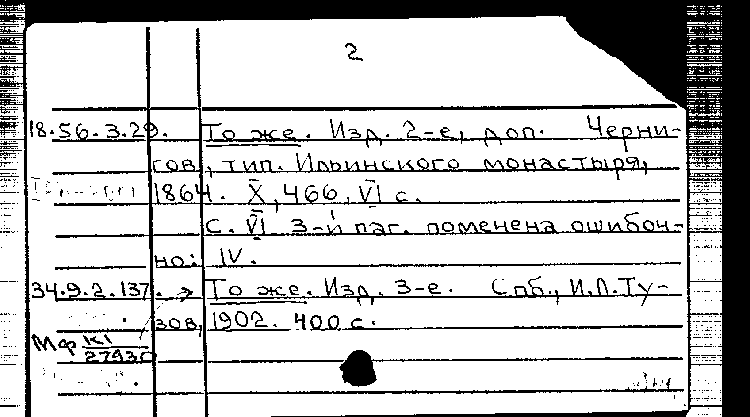 2
18.56.3.29. То же. Изд. 2-е, доп. Черни-
гов, тип. Ильинского монастыря,
1864. X, 466, VI с.
С. VI 3-й паг. помечена ошибоч-
но: IV.
34.9.2.137. → То же. Изд. 3-е. Спб., И.Л. Ту-
зов, 1902. 400 с.
Мф К1
27430